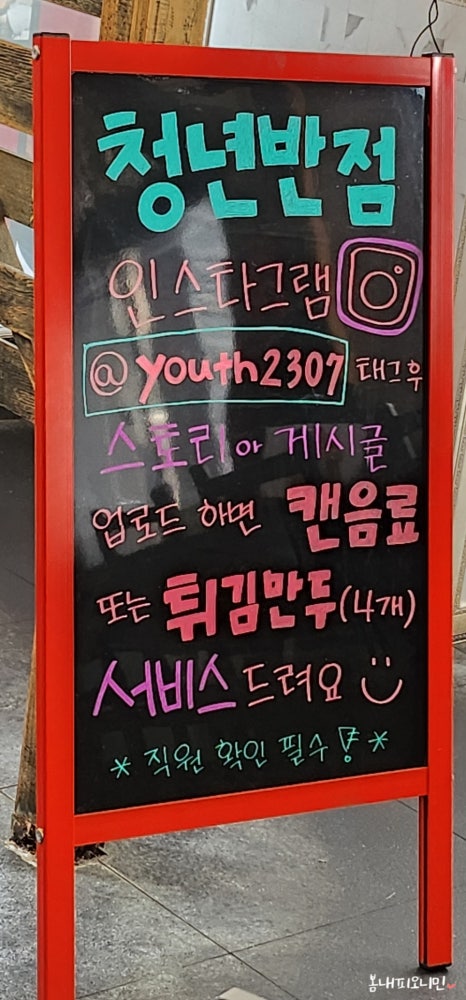 청년반점
인스타그램
@youth2307 태그후
스토리아 게시글
업로드 하면 캔음료
또는 튀김만두(4개)
서비스 드려요
* 직원 확인 필수! *
봄내피오니민